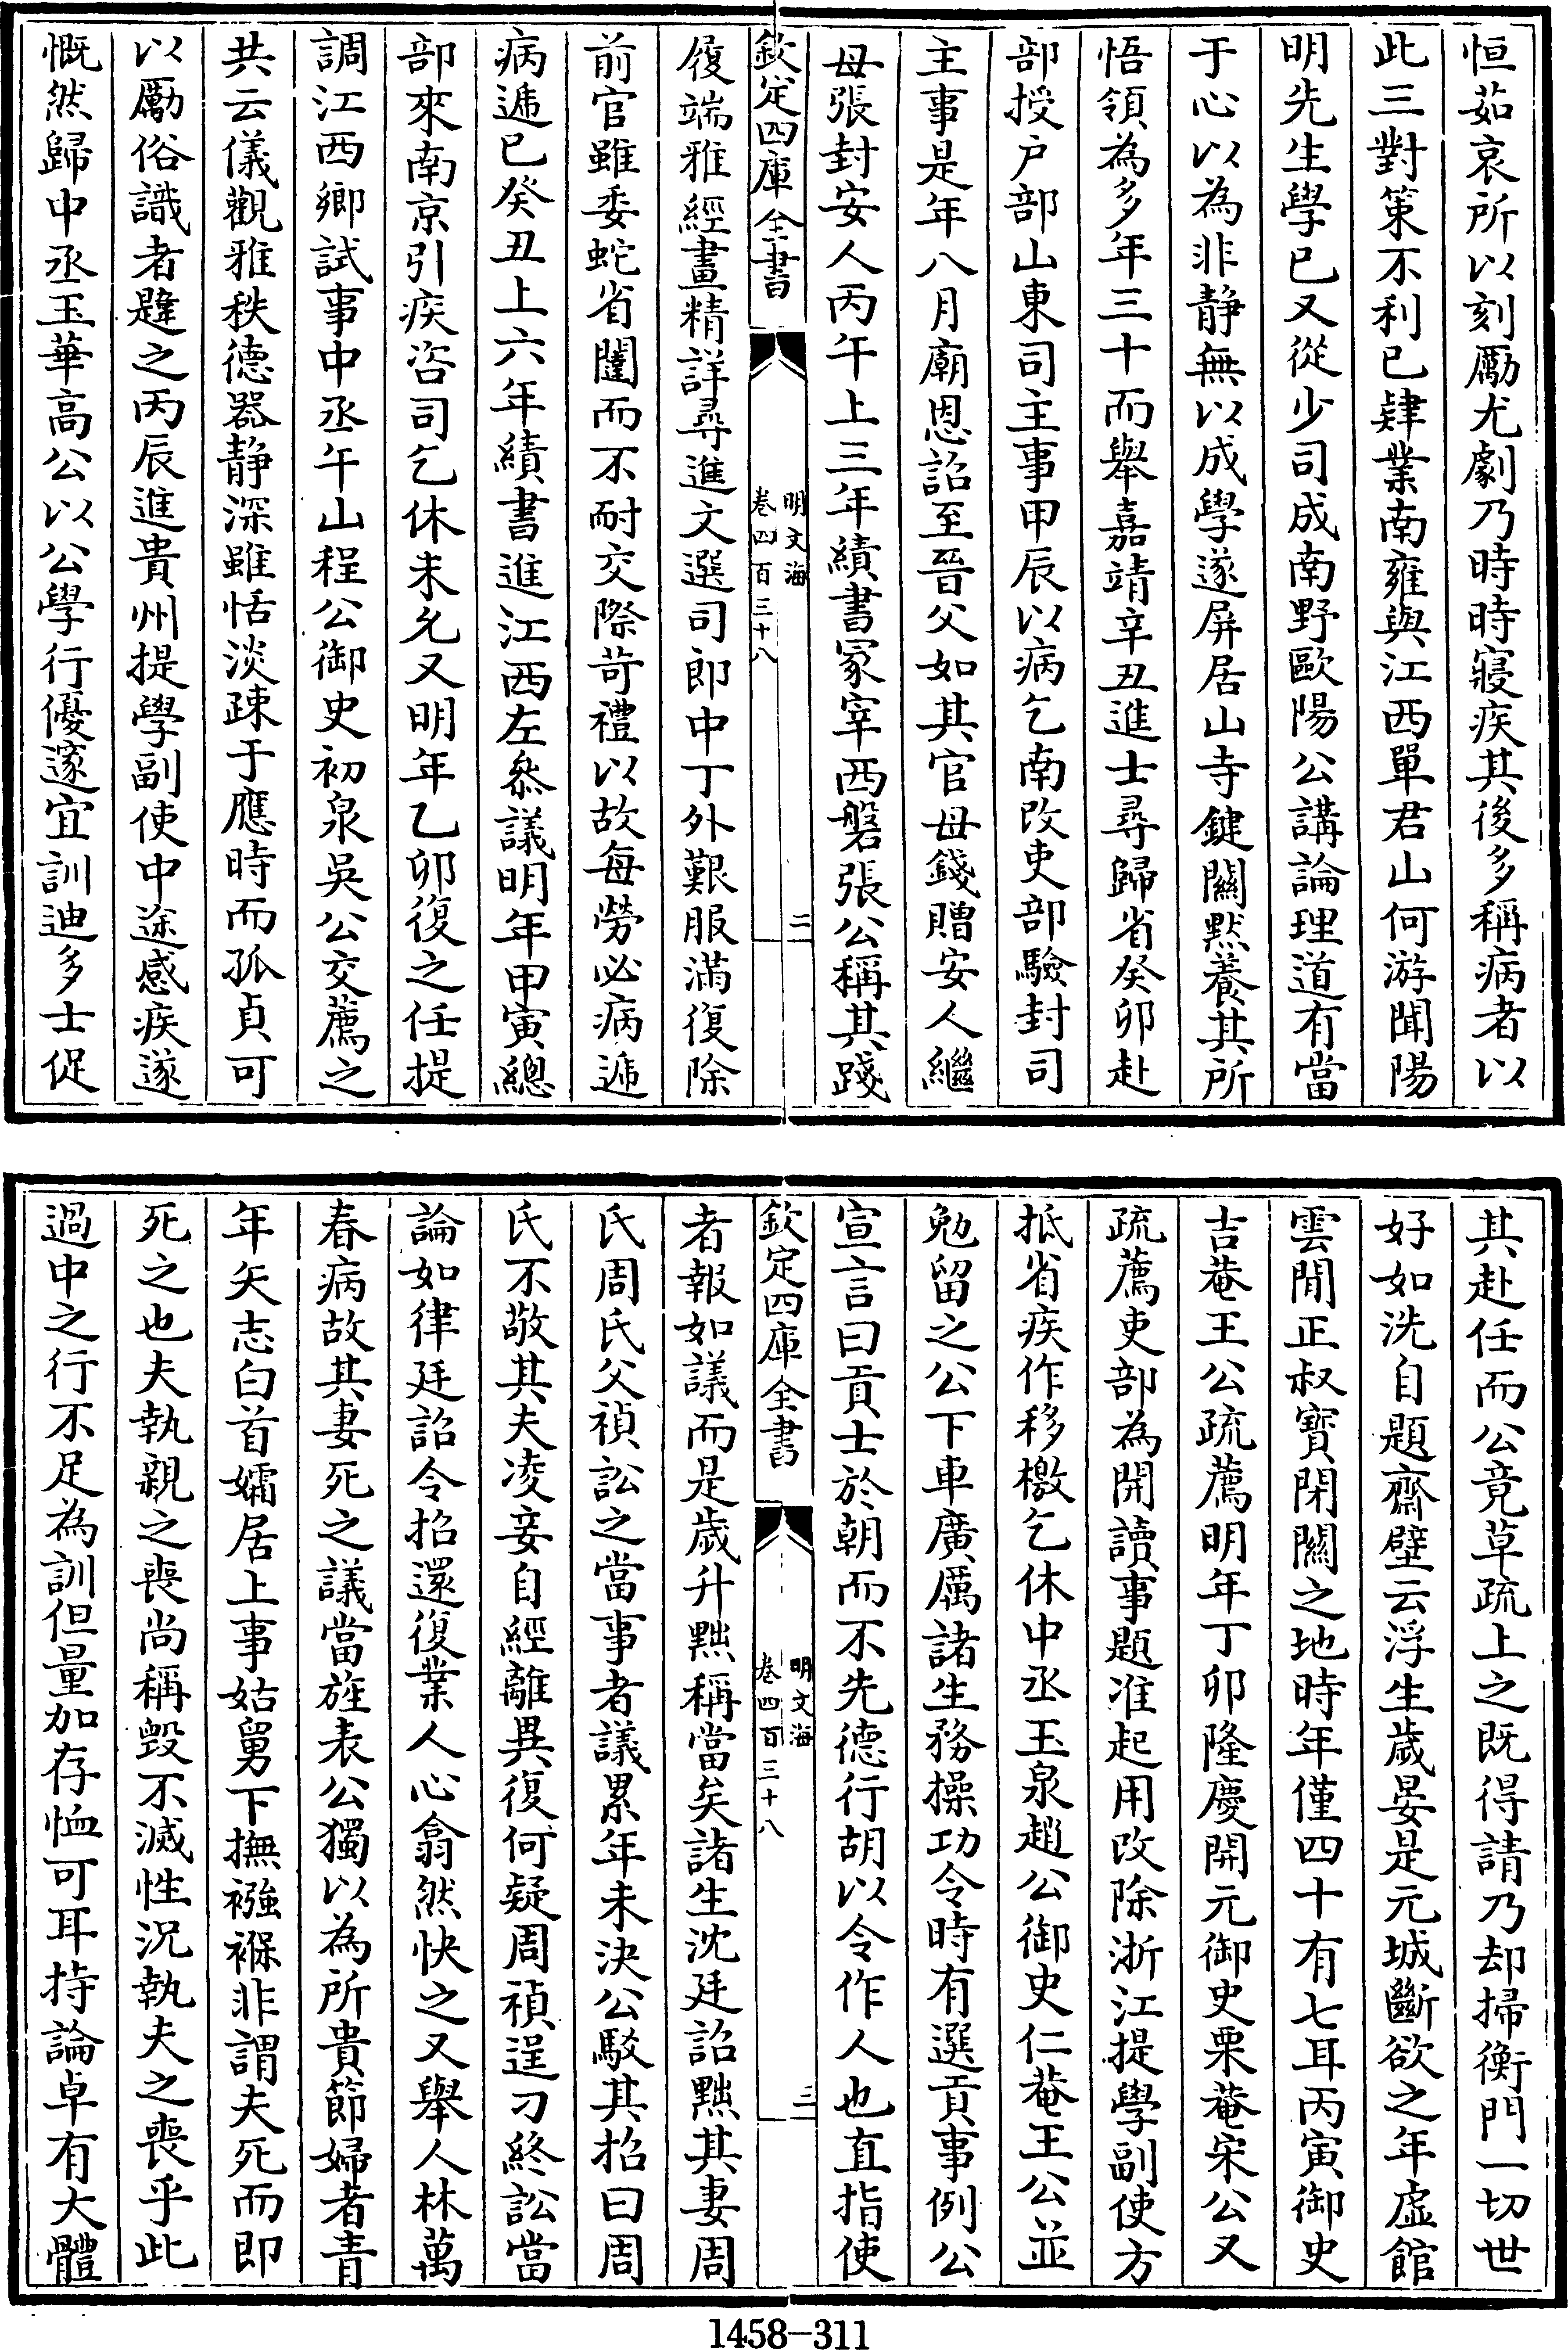 恒茹哀所以刻勵尤劇乃時時寢疾其後多稱病者以
此三對策不利已肄業南雍與江西單君山何游聞陽
明先生學已又從少司成南野歐陽公講論理道有當
于心以為非静無以成學遂屏居山寺鍵關黙養其所
悟領為多年三十而舉嘉靖辛丑進士尋歸省癸卯赴
部授户部山東司主事甲辰以病乞南改吏部驗封司
主事是年八月廟恩詔至晉父如其官母錢贈安人繼
母張封安人丙午上三年績書冢宰西磐張公稱其踐
欽定四庫全書
明文海
卷四百三十八
二
履端雅經畫精詳尋進文選司郎中丁外艱服滿復除
前官雖委蛇省闥而不耐交際苛禮以故每勞必病遞
病遞已癸丑上六年績書進江西左叅議明年甲寅總
部來南京引疾咨司乞休未允又明年乙卯復之任提
調江西鄉試事中丞午山程公御史初泉吳公交薦之
共云儀觀雅秩德器静深雖恬淡疎于應時而孤貞可
以勵俗識者韙之丙辰進貴州提學副使中途感疾遂
慨然歸中丞玉華高公以公學行優邃宜訓迪多士促
其赴任而公竟草疏上之既得請乃却掃衡門一切世
好如洗自題齋壁云浮生歲晏是元城斷欲之年虚館
雲閒正叔寶閉關之地時年僅四十有七耳丙寅御史
吉菴王公疏薦明年丁卯隆慶開元御史栗菴宋公又
疏薦吏部為開讀事題准起用改除浙江提學副使方
抵省疾作移檄乞休中丞玉泉趙公御史仁菴王公並
勉留之公下車廣厲諸生務操功令時有選貢事例公
宣言曰貢士於朝而不先德行胡以令作人也直指使
欽定四庫全書
明文海
卷四百三十八
三
者報如議而是歲升黜稱當矣諸生沈廷詔黜其妻周
氏周氏父禎訟之當事者議累年未決公駁其招曰周
氏不敬其夫凌妾自經離異復何疑周禎逞刁終訟當
論如律廷詔令招還復業人心翕然快之又舉人林萬
春病故其妻死之議當旌表公獨以為所貴節婦者青
年矢志白首孀居上事姑舅下撫襁褓非謂夫死而即
死之也夫執親之喪尚稱毀不滅性況執夫之喪乎此
過中之行不足為訓但量加存恤可耳持論卓有大體
1458—311